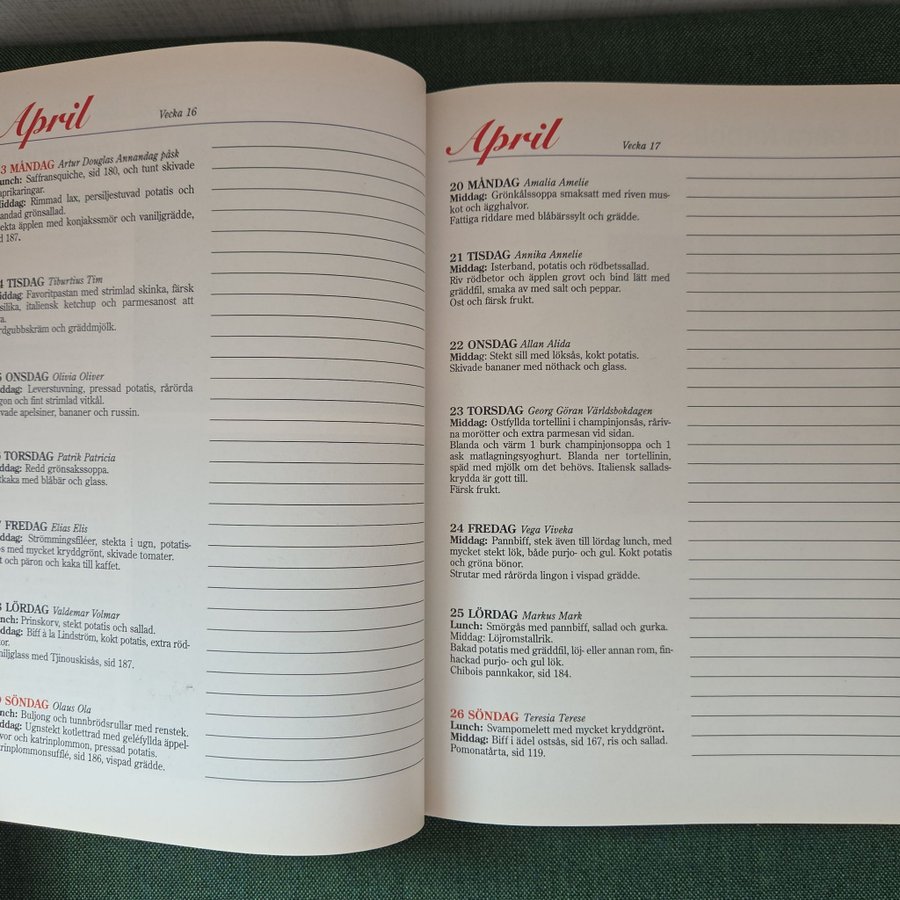 April
Vecka 16
3 MÅNDAG Artur Douglas Annandag påsk
Lunch: Saffransquiche, sid 180, och tunt skivade
paprikaringar.
Middag: Rimmad lax, persiljestuvad potatis och
grönsallad.
äpplen med konjakssmör och vaniljgrädde,
187.
TISDAG Tiburtius Tim
Favoritpastan med strimlad skinka, färsk
italiensk ketchup och parmesanost att
och gräddmjölk.
ONSDAG Olivia Oliver
Leverstuvning, pressad potatis, rårörda
och fint strimlad vitkål.
apelsiner, bananer och russin.
TORSDAG Patrik Patricia
Redd grönsakssoppa.
med blåbär och glass.
FREDAG Elias Elis
Strömmingsfiléer, stekta i ugn, potatis-
med mycket kryddgrönt, skivade tomater.
och päron och kaka till kaffet.
LÖRDAG Valdemar Volmar
Prinskorv, stekt potatis och sallad.
Biff à la Lindström, kokt potatis, extra röd-
med Tjinouskisås, sid 187.
SÖNDAG Olaus Ola
Buljong och tunnbrödsrullar med renstek.
Ugnstekt kotlettrad med geléfyllda äppel-
och katrinplommon, pressad potatis.
sid 186, vispad grädde.
April
Vecka 17
20 MÅNDAG Amalia Amelie
Middag: Grönkålssoppa smaksatt med riven mus-
kot och ägghalvor.
Fattiga riddare med blåbärssylt och grädde.
21 TISDAG Annika Annelie
Middag: Isterband, potatis och rödbetssallad.
Riv rödbetor och äpplen grovt och bind lätt med
gräddfil, smaka av med salt och peppar.
Ost och färsk frukt.
22 ONSDAG Allan Alida
Middag: Stekt sill med löksås, kokt potatis.
Skivade bananer med nöthack och glass.
23 TORSDAG Georg Göran Världsbokdagen
Middag: Ostfyllda tortellini i champinjonsås, råriv-
na morötter och extra parmesan vid sidan.
Blanda och värm 1 burk champinjonsoppa och 1
ask matlagningsyoghurt. Blanda ner tortellinin,
späd med mjölk om det behövs. Italiensk sallads-
krydda är gott till.
Färsk frukt.
24 FREDAG Vega Viveka
Middag: Pannbiff, stek även till lördag lunch, med
mycket stekt lök, både purjo- och gul. Kokt potatis
och gröna bönor.
Strutar med rårörda lingon i vispad grädde.
25 LÖRDAG Markus Mark
Lunch: Smörgås med pannbiff, sallad och gurka.
Middag: Löjromstallrik.
Bakad potatis med gräddfil, löj- eller annan rom, fin-
hackad purjo- och gul lök.
Chibois pannkakor, sid 184.
26 SÖNDAG Teresia Terese
Lunch: Svampomelett med mycket kryddgrönt.
Middag: Biff i ädel ostsås, sid 167, ris och sallad.
Pomonatårta, sid 119.